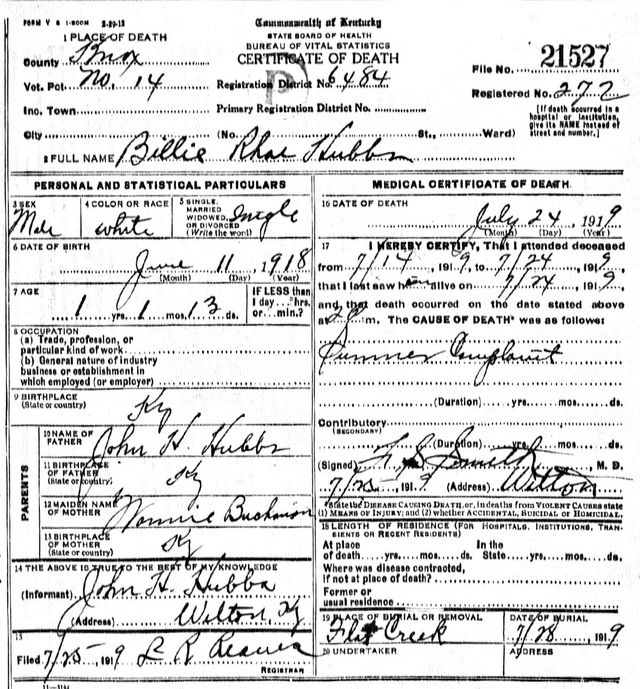 FORM V S 1-500M 2-29-12
Commonwealth of Kentucky
STATE BOARD OF HEALTH
BUREAU OF VITAL STATISTICS
CERTIFICATE OF DEATH
1 PLACE OF DEATH
County Knox
Vot. Pct. No. 14
Registration District No. 6484
File No. 21527
Registered No. 272
Inc. Town
Primary Registration District No.
[If death occurred in a hospital or institution, give its NAME instead of street and number.]
City (No. St., Ward)
2 FULL NAME Billie Rhae Hubbs
PERSONAL AND STATISTICAL PARTICULARS
3 SEX Male
4 COLOR OR RACE white
5 SINGLE, MARRIED WIDOWED, OR DIVORCED (Write the word) Single
6 DATE OF BIRTH
June 11, 1918
(Month) (Day) (Year)
7 AGE
1 yrs. 1 mos. 13 ds.
IF LESS than 1 day ...hrs. or...min.?
8 OCCUPATION
(a) Trade, profession, or particular kind of work
(b) General nature of industry business or establishment in which employed (or employer)
9 BIRTHPLACE
(State or country) Ky
PARENTS
10 NAME OF FATHER John H Hubbs
11 BIRTHPLACE OF FATHER (State or country) Ky
12 MAIDEN NAME OF MOTHER Buchanan
13 BIRTHPLACE OF MOTHER (State or country) Ky
14 THE ABOVE IS TRUE TO THE BEST OF MY KNOWLEDGE
(Informant) John H. Hubbs
(Address) Wilton, Ky
15
Filed 7/25, 1919 L R Reaves
REGISTRAR
MEDICAL CERTIFICATE OF DEATH
16 DATE OF DEATH
July 24, 1919
(Month) (Day) (Year)
17 I HEREBY CERTIFY, That I attended deceased
from 7/14, 1919, to 7/24, 1919,
that I last saw him alive on 7/24, 1919,
and that death occurred on the date stated above
at m. The CAUSE OF DEATH* was as follows:
Summer Complaint
(Duration) yrs. mos. ds.
Contributory
(SECONDARY)
(Duration) yrs. mos. ds.
(Signed) Smith, M. D.
7/25, 1919 (Address) Wilton
*State the DISEASE CAUSING DEATH, or, in deaths from VIOLENT CAUSES state (1) MEANS OF INJURY; and (2) whether ACCIDENTAL, SUICIDAL or HOMICIDAL.
18 LENGTH OF RESIDENCE (FOR HOSPITALS, INSTITUTIONS, TRANSIENTS OR RECENT RESIDENTS)
At place of death yrs. mos. ds. In the State yrs. mos. ds.
Where was disease contracted, if not at place of death?
Former or usual residence
19 PLACE OF BURIAL OR REMOVAL Flat Creek
DATE OF BURIAL 7/28, 1919
20 UNDERTAKER
ADDRESS